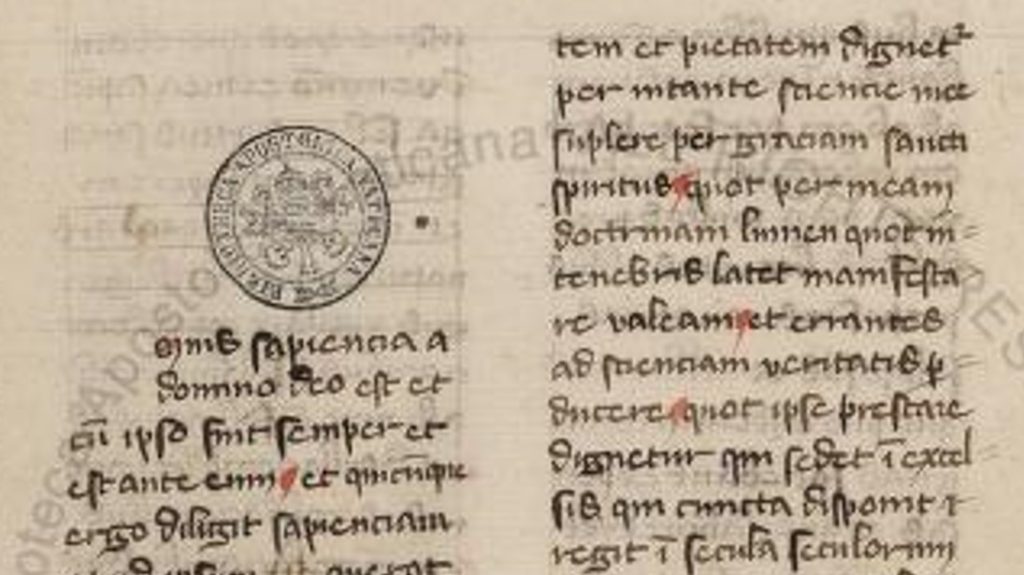 BIBLIOTHECA APOSTOLICA VATICANA
omnis sapiencia a
domino deo est et
cū ipso fuit semper et
est ante eum et quicūque
ergo diligit sapienciam
ad ipsum querat
tem et pietatem dignet²
per intante sciencie mee
suplere per graciam sancti
spiritus quot per meam
doctrinam lumen quot in=
tenebris latet manifesta
re valeam et errantes
ad scienciam veritatis p
ducere quot ipse prestare
dignetur qui sedet ī excel
sis qui cuncta disponit et
regit ī secula seculorum